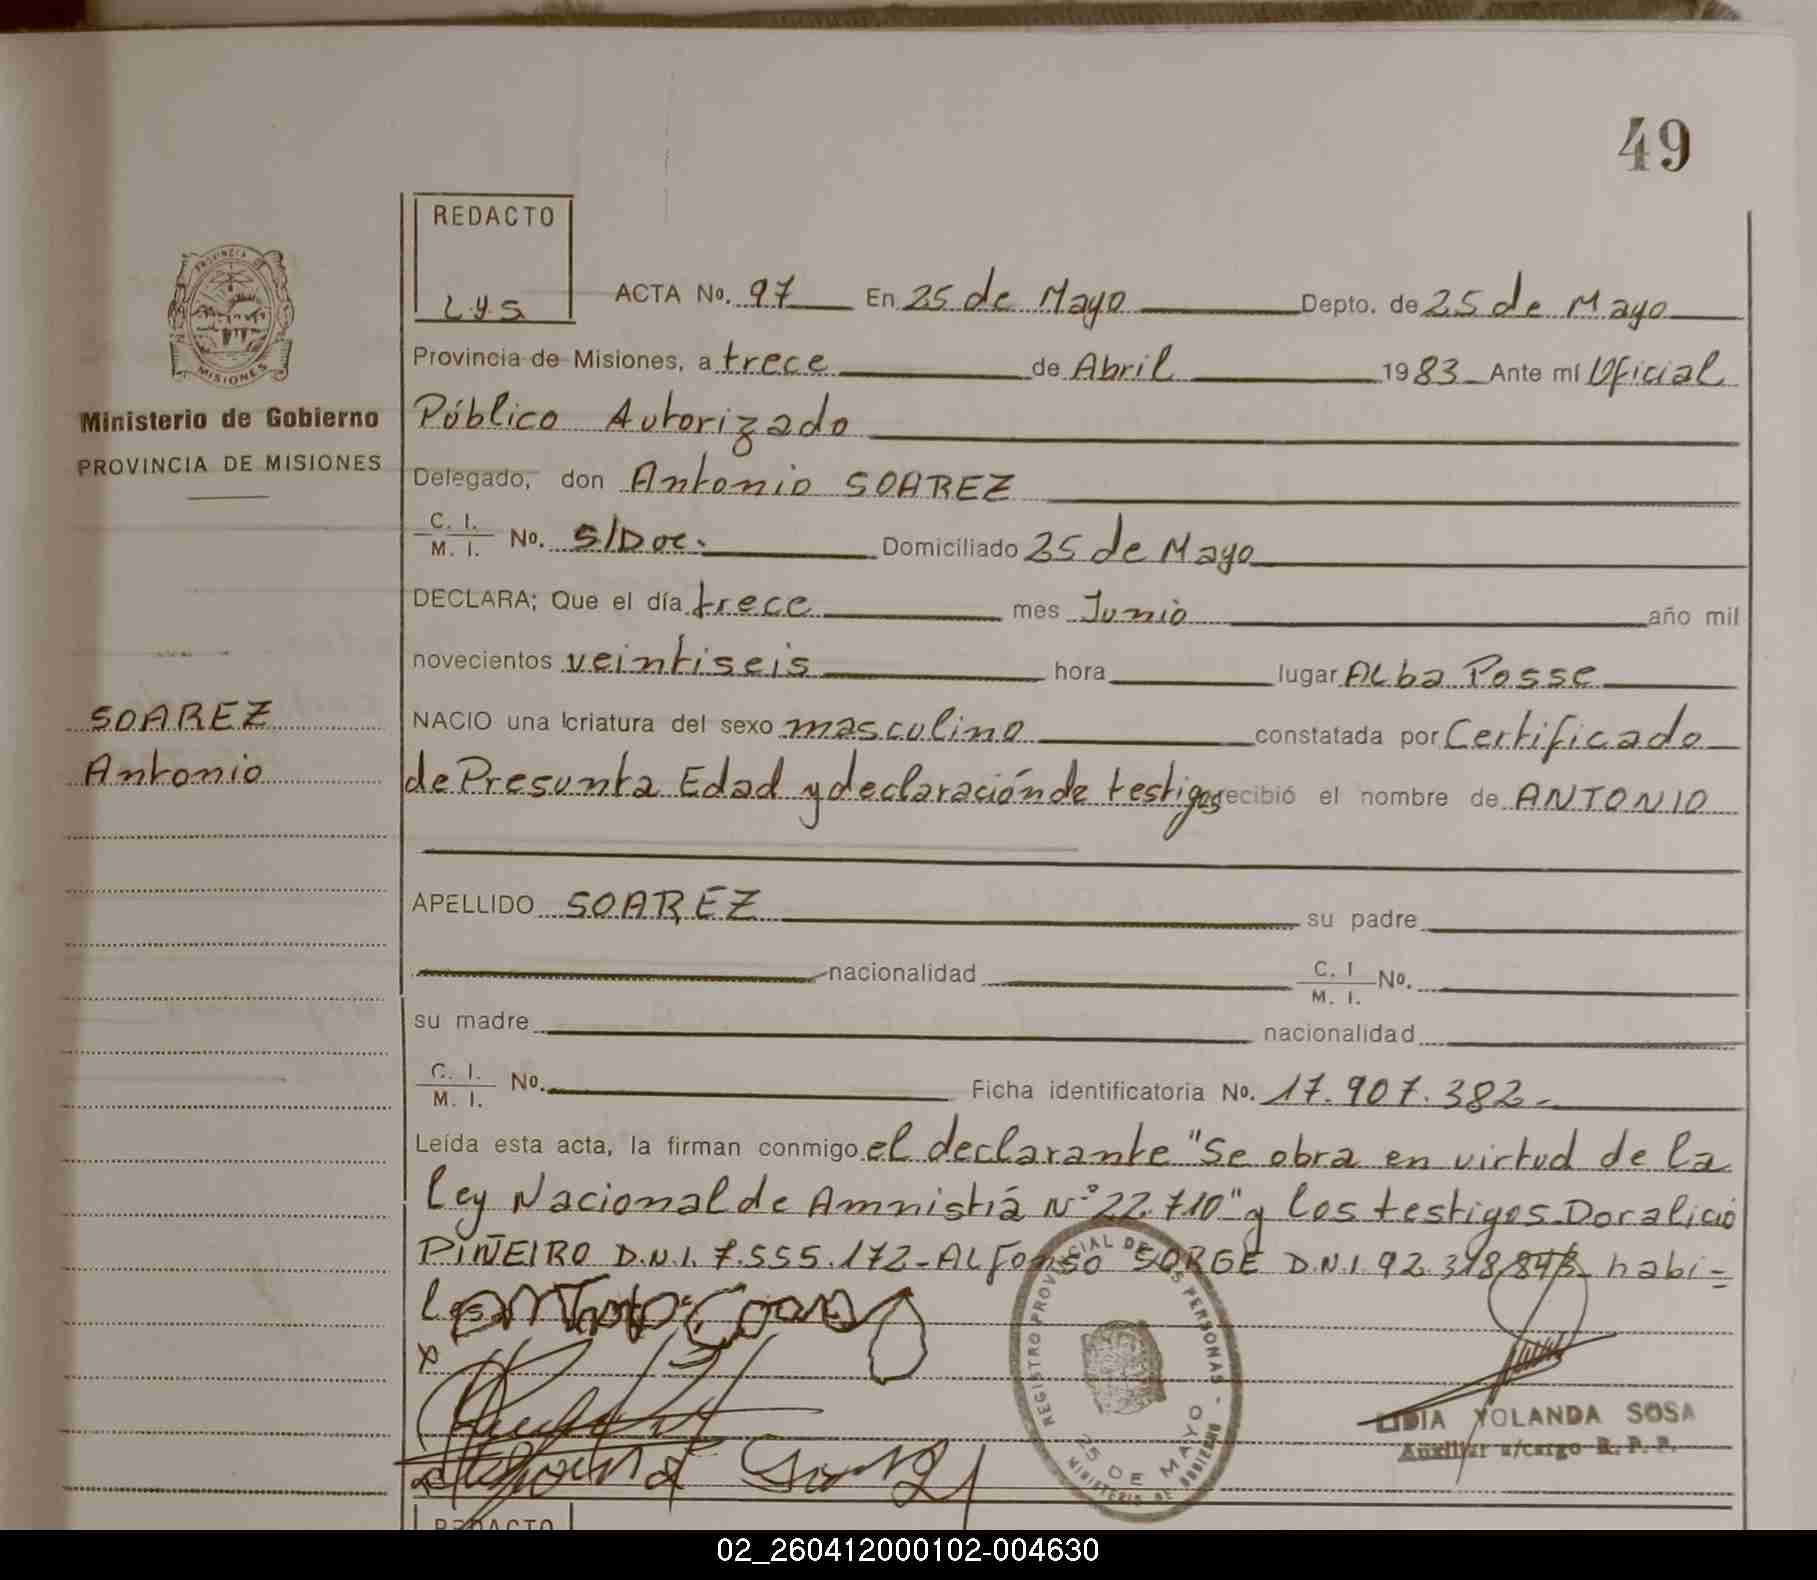 49
REDACTO
L.Y.S
ACTA No. 97 En 25 de Mayo Depto. de 25 de Mayo
PROVINCIA DE
MISIONES
Provincia de Misiones, a trece de Abril 1983 Ante mí Oficial
Ministerio de Gobierno
Público Autorizado
PROVINCIA DE MISIONES
Delegado, don Antonio SOAREZ
C. I.
M. I. No. S/Doc. Domiciliado 25 de Mayo
DECLARA; Que el día trece mes Junio año mil
novecientos veintiseis hora lugar Alba Posse
SOAREZ
NACIO una criatura del sexo masculino constatada por Certificado
Antonio
de Presunta Edad y declaración de testigos recibió el nombre de ANTONIO
APELLIDO SOAREZ su padre
nacionalidad C. I
M. I. No.
su madre nacionalidad
C. I.
M. I. No. Ficha identificatoria No. 17.907.382-
Leída esta acta, la firman conmigo el declarante "Se obra en virtud de la
Ley Nacional de Amnistiá N° 22.710" y los testigos Doralicio
PIÑEIRO D.N.I. 7.555.172- ALfonso SORGE D.N.I 92.318.843 habi=
les
x
REGISTRO PROVINCIAL DE LAS PERSONAS -
25 DE MAYO
MINISTERIO DE GOBIERNO
LIDIA YOLANDA SOSA
Auxiliar a/cargo R. P. P.
REDACTO
02_260412000102-004630